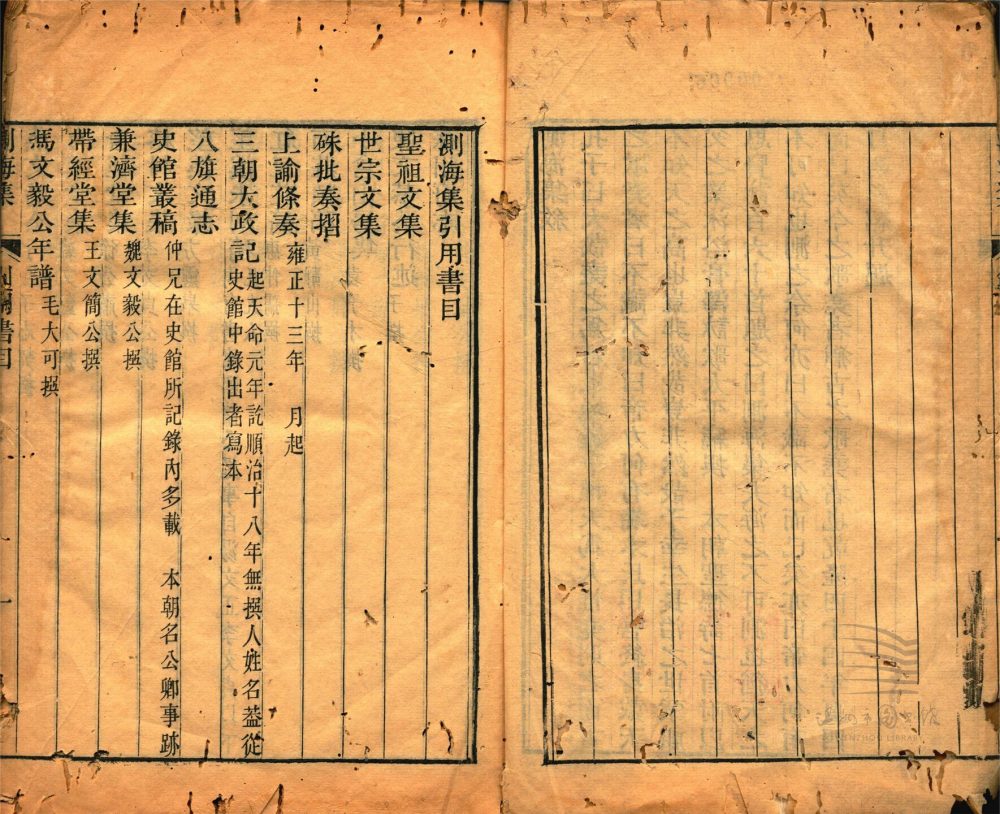 測海集引用書目
聖祖文集
世宗文集
硃批奏摺
上諭條奏 雍正十三年 月起
三朝大政記 起天命元年訖順治十八年無撰人姓名蓋從
史館中錄出者寫本
八旗通志
史館叢稿 仲兄在史館所記錄內多載 本朝名公卿事跡
兼濟堂集 魏文毅公撰
帶經堂集 王文簡公撰
馮文毅公年譜 毛大可撰
測海集 引用書目 一
溫州市圖書館
WENZHOU LIBRARY